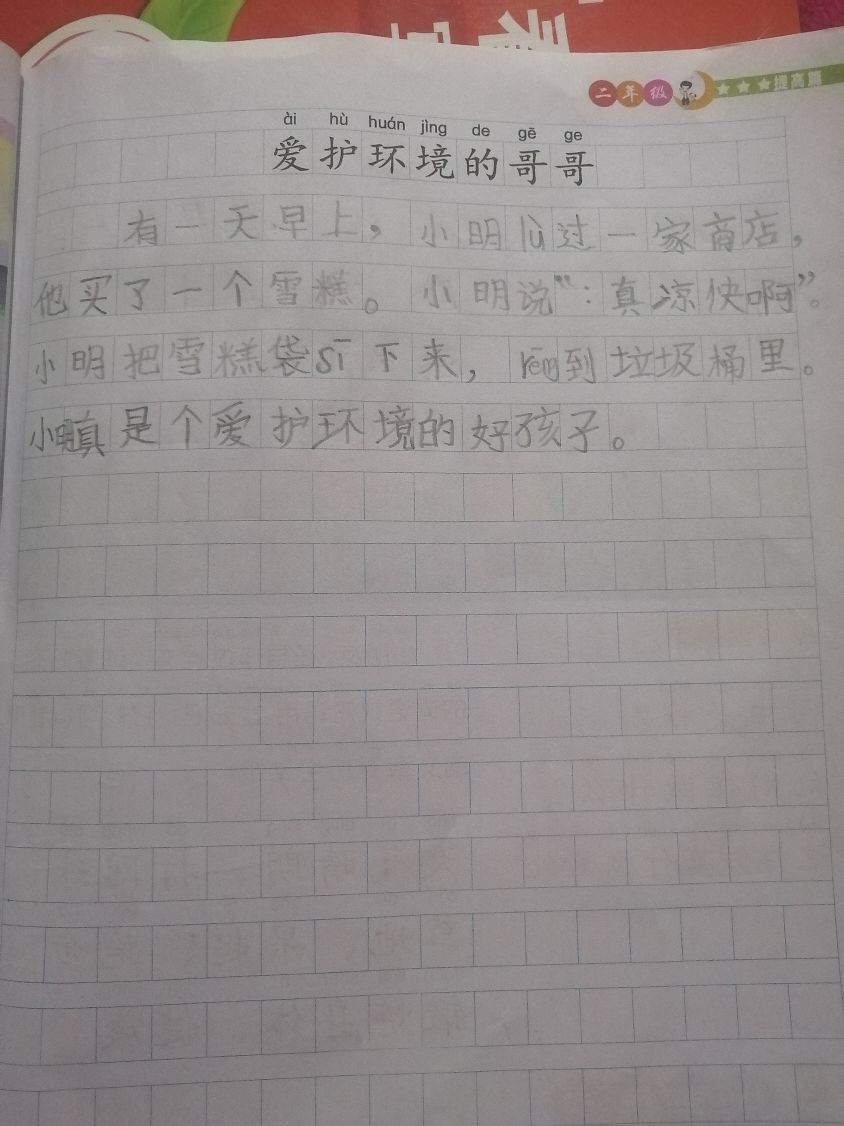 二年级 ★★★提高篇
ài hù huán jìng de gē ge
爱护环境的哥哥
有一天早上，小明lù过一家商店，
他买了一个雪糕。小明说“：真凉快啊”。
小明把雪糕袋sī下来，rēng到垃圾桶里。
小明真是个爱护环境的好孩子。